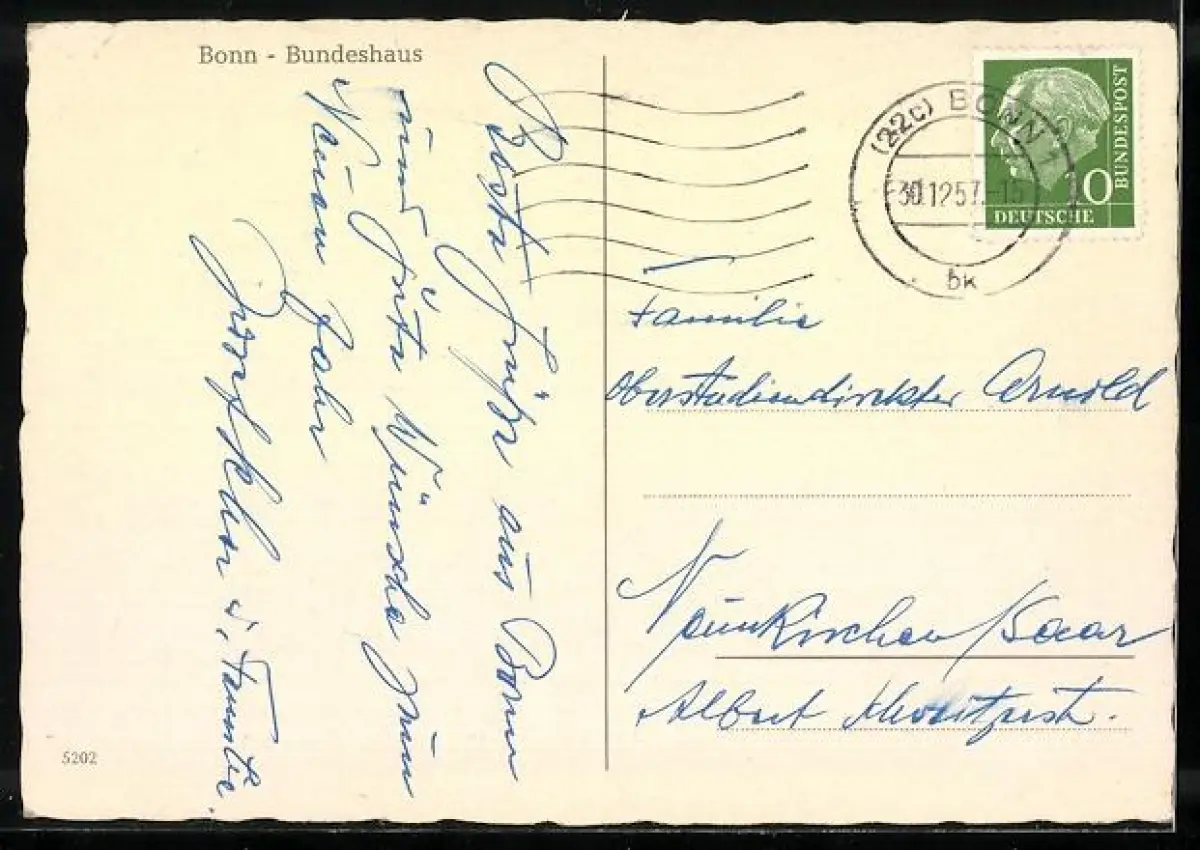 Bonn - Bundeshaus
Beste Grüße aus Bonn
und gute Wünsche zum
Neuen Jahr
u. Familie.
5202
(22c) BONN 1
30.12.57.-15
bk
DEUTSCHE
BUNDESPOST
10
Familie
Oberstudiendirektor Arnold
Neunkirchen/Saar
Albert